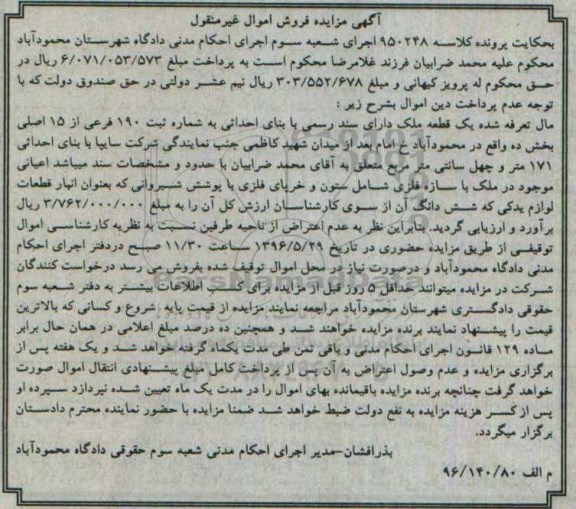 آگهی مزایده فروش اموال غیرمنقول
بحکایت پرونده کلاسه ۹۵۰۲۴۸ اجرای شعبه سوم اجرای احکام مدنی دادگاه شهرستان محمودآباد
محکوم علیه محمد ضرابیان فرزند غلامرضا محکوم است به پرداخت مبلغ ۶/۰۷۱/۰۵۳/۵۷۳ ریال در
حق محکوم له پرویز کیهانی و مبلغ ۳۰۳/۵۵۲/۶۷۸ ریال نیم عشر دولتی در حق صندوق دولت که با
توجه عدم پرداخت دین اموال بشرح زیر :
مال تعرفه شده یک قطعه ملک دارای سند رسمی با بنای احداثی به شماره ثبت ۱۹۰ فرعی از ۱۵ اصلی
بخش ده واقع در محمودآباد خ امام بعد از میدان شهید کاظمی جنب نمایندگی شرکت سایپا با بنای احداثی
۱۷۱ متر و چهل سانتی متر مربع متعلق به آقای محمد ضرابیان با حدود و مشخصات سند میباشد اعیانی
موجود در ملک با سازه فلزی شامل ستون و خرپای فلزی با پوشش شیروانی که بعنوان انبار قطعات
لوازم یدکی که شش دانگ آن از سوی کارشناسان ارزش کل آن را به مبلغ ۳/۷۶۲/۰۰۰/۰۰۰ ریال
برآورد و ارزیابی گردید. بنابراین نظر به عدم اعتراض از ناحیه طرفین نسبت به نظریه کارشناسی اموال
توقیفی از طریق مزایده حضوری در تاریخ ۱۳۹۶/۵/۲۹ ساعت ۱۱/۳۰ صبح دردفتر اجرای احکام
مدنی دادگاه محمودآباد و درصورت نیاز در محل اموال توقیف شده بفروش می رسد درخواست کنندگان
شرکت در مزایده میتوانند حداقل ۵ روز قبل از مزایده برای کسب اطلاعات بیشتر به دفتر شعبه سوم
حقوقی دادگستری شهرستان محمودآباد مراجعه نمایند مزایده از قیمت پایه شروع و کسانی که بالاترین
قیمت را پیشنهاد نمایند برنده مزایده خواهند شد و همچنین ده درصد مبلغ اعلامی در همان حال برابر
ماده ۱۲۹ قانون اجرای احکام مدنی و باقی ثمن طی مدت یکماه گرفته خواهد شد و یک هفته پس از
برگزاری مزایده و عدم وصول اعتراض به آن پس از پرداخت کامل مبلغ پیشنهادی انتقال اموال صورت
خواهد گرفت چنانچه برنده مزایده باقیمانده بهای اموال را در مدت یک ماه تعیین شده نپردازد سپرده او
پس از کسر هزینه مزایده به نفع دولت ضبط خواهد شد ضمنا مزایده با حضور نماینده محترم دادستان
برگزار میگردد.
بذرافشان-مدیر اجرای احکام مدنی شعبه سوم حقوقی دادگاه محمودآباد
م الف ۹۶/۱۴۰/۸۰